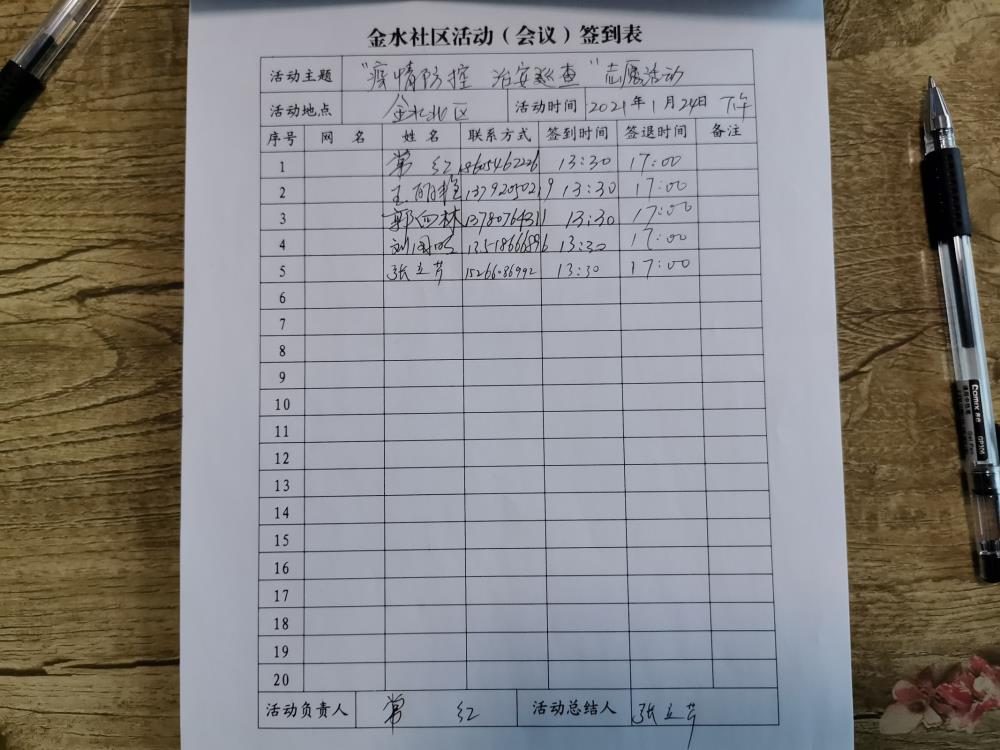 金水社区活动（会议）签到表
活动主题 “疫情防控 治安巡查”志愿活动
活动地点 金水北区 活动时间 2021年1月24日 下午
序号 网 名 姓 名 联系方式 签到时间 签退时间 备注
1 常 红 18605462226 13:30 17:00
2 王 13792050219 13:30 17:00
3 郭向林 13780764311 13:30 17:00
4 刘国明 13518666896 13:30 17:00
5 张立芹 15266086992 13:30 17:00
6
7
8
9
10
11
12
13
14
15
16
17
18
19
20
活动负责人 常 红 活动总结人 张立芹
Comix 齐心
GP306